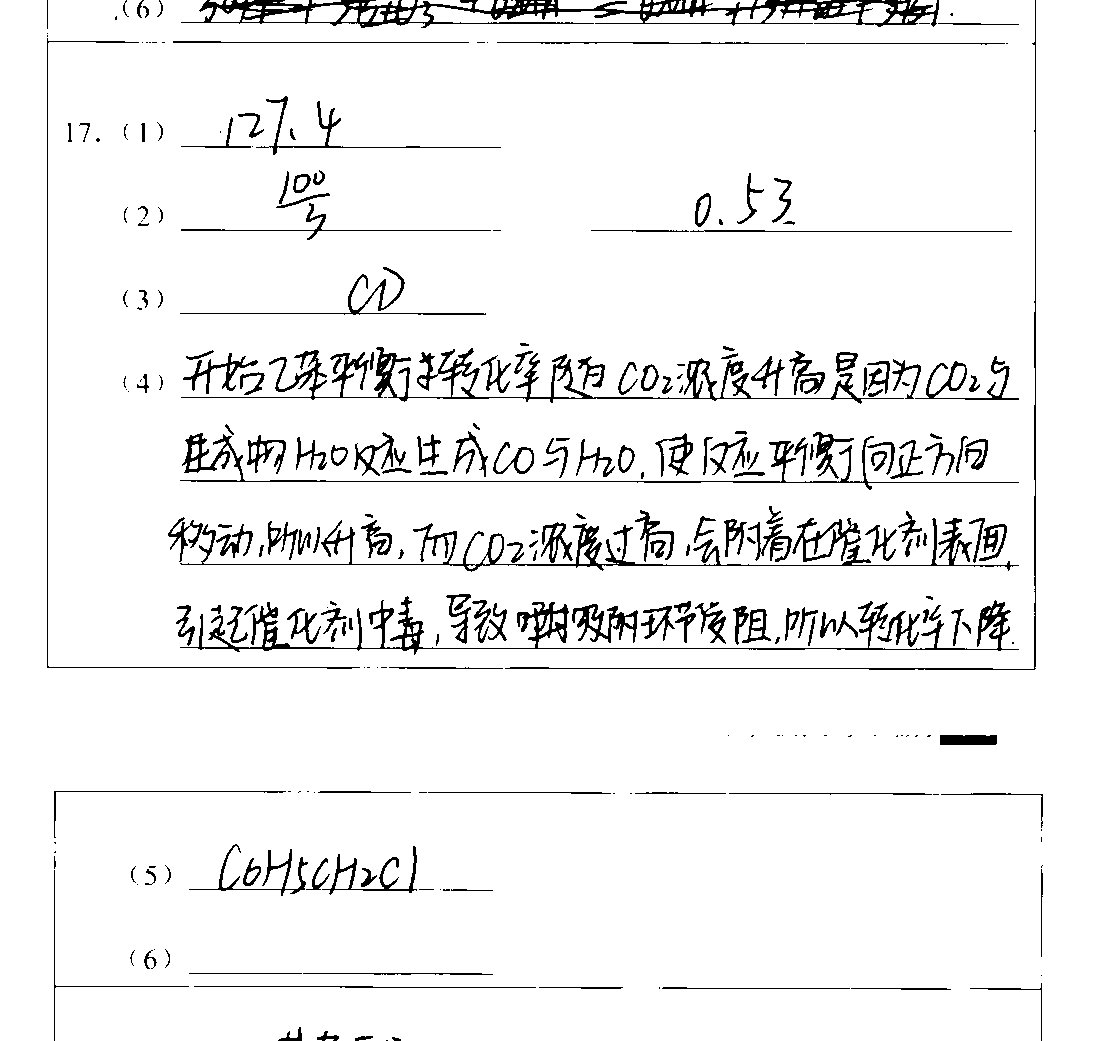 (6)
17.(1) 127.4
(2) 100/3 0.53
(3) CD
(4) 开始乙苯平衡转化率随着CO2浓度升高是因为CO2与
生成物H2O反应生成CO与H2O,使反应平衡向正方向
移动,所以升高,而CO2浓度过高,会附着在催化剂表面,
引起催化剂中毒,导致吸附环节受阻,所以转化率下降.
(5) C6H5CH2Cl
(6)